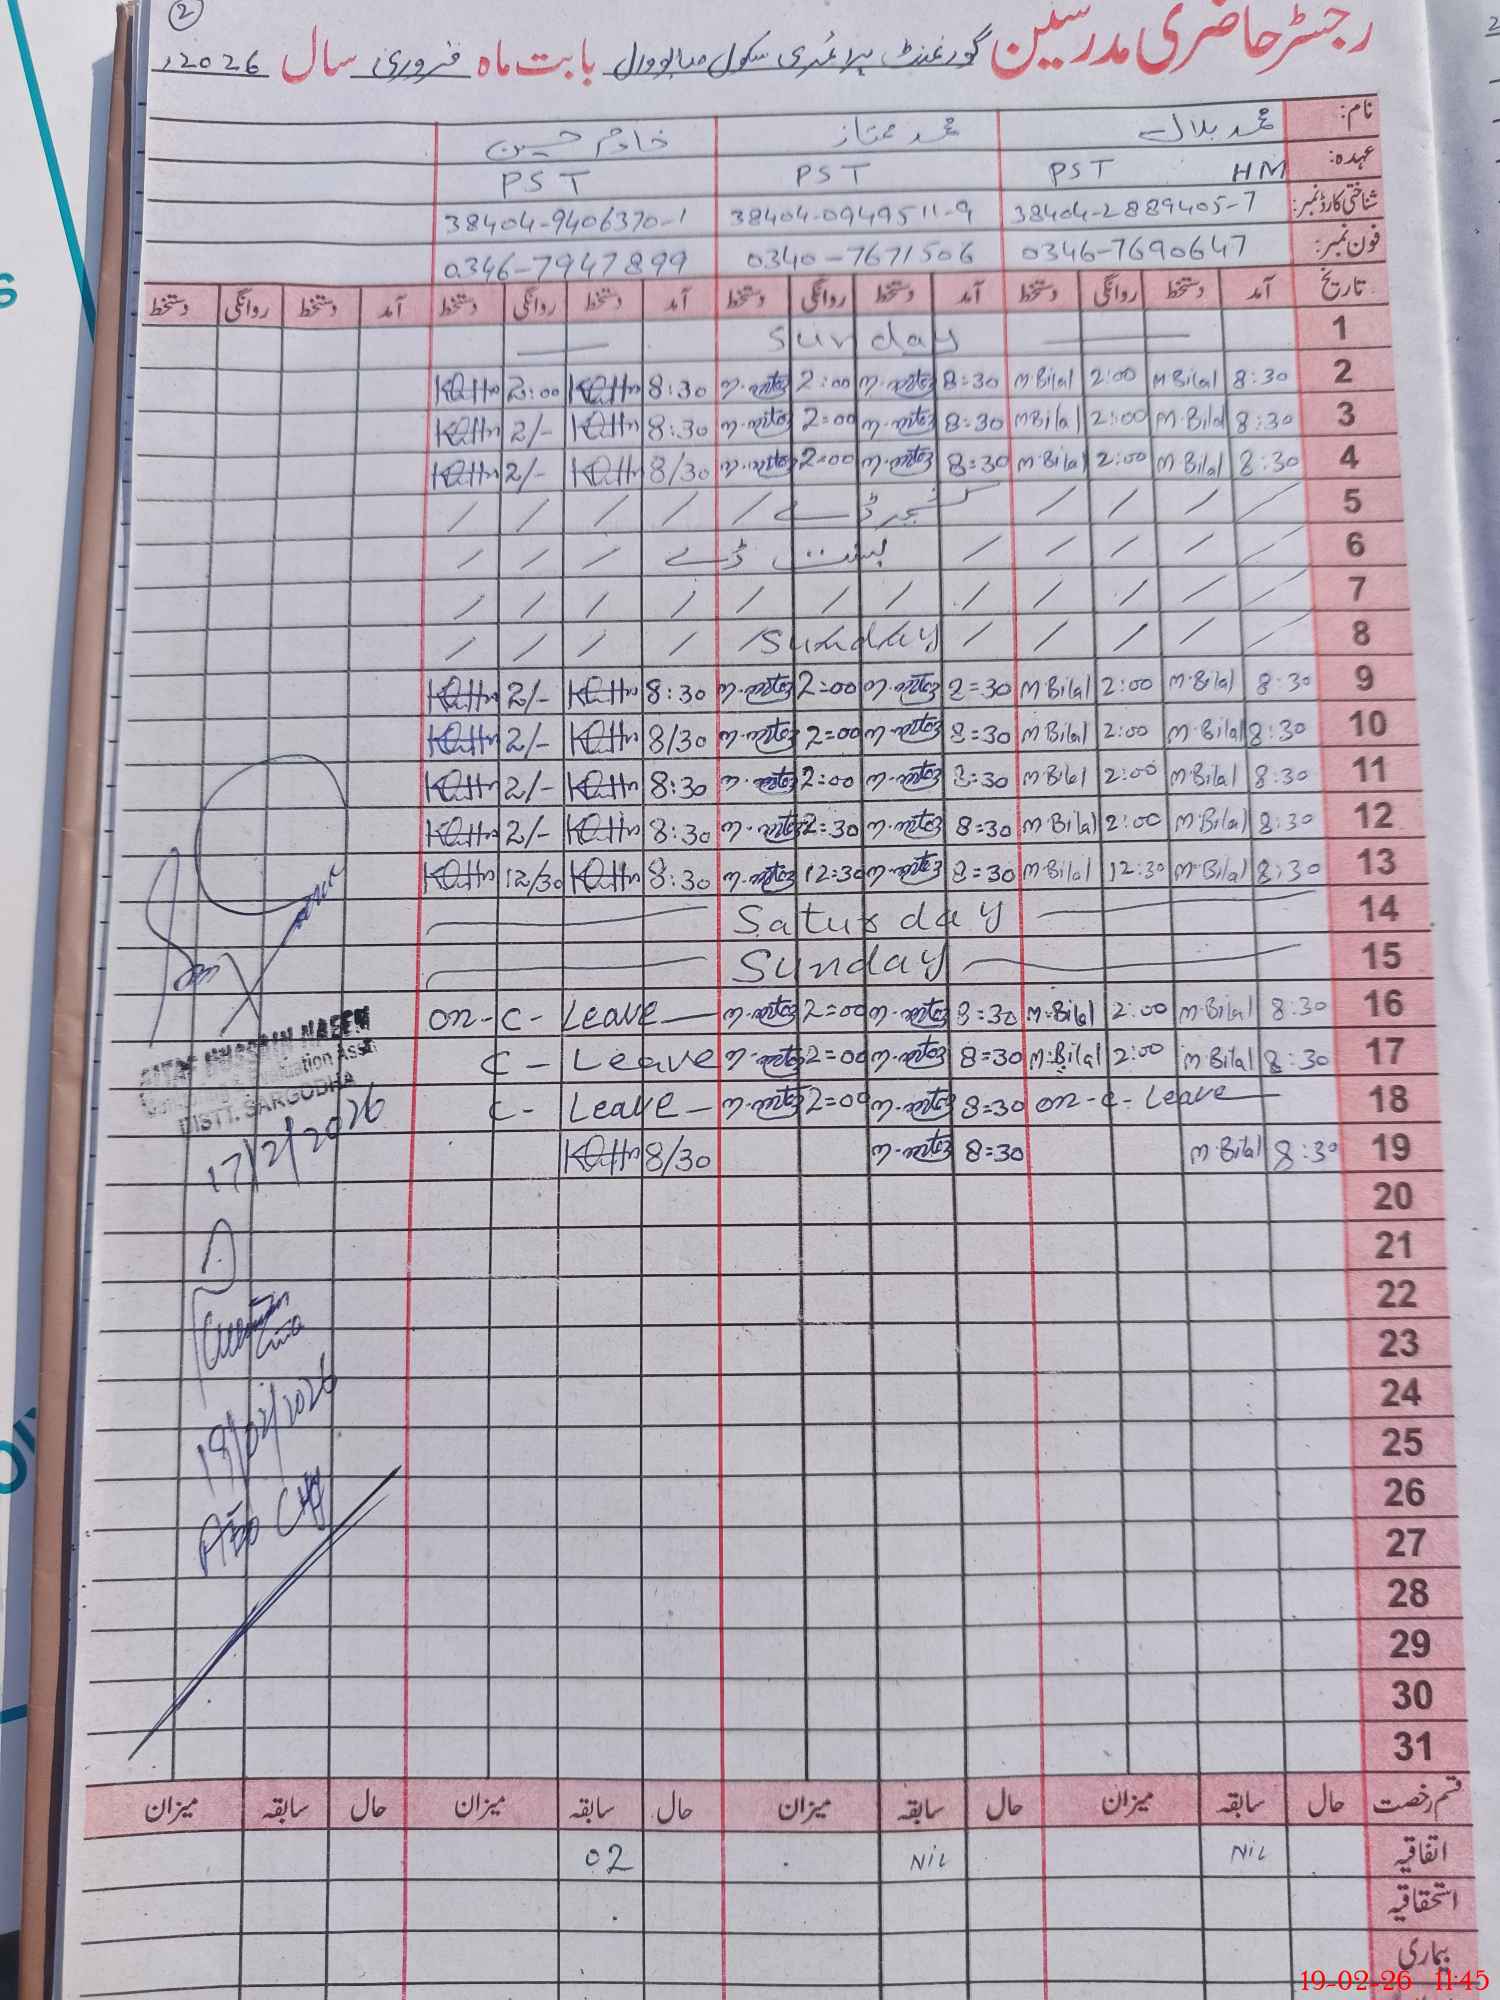 2
رجسٹر حاضری مدرسین گورنمنٹ پرائمری سکول بابت ماہ فروری سال 2026ء
نام: محمد بلال محمد ممتاز خادم حسین
عہدہ: HM PST PST PST
شناختی کارڈ نمبر: 38404-2889405-7 38404-0949511-9 38404-9406370-1
فون نمبر: 0346-7690647 0340-7671506 0346-7947899
تاریخ آمد دستخط روانگی دستخط آمد دستخط روانگی دستخط آمد دستخط روانگی دستخط آمد دستخط روانگی دستخط
1 Sunday
2 8:30 M.Bilal 2:00 M.Bilal 8=30 2:00 8:30 2:00
3 8:30 M.Bilal 2:00 M.Bilal 8=30 2=00 8:30 2/-
4 8:30 M.Bilal 2:00 M.Bilal 8=30 2=00 8/30 2/-
5 کشمیر ڈے
6 بسنت ڈے
7
8 Sunday
9 8:30 M.Bilal 2:00 M.Bilal 8=30 2=00 8:30 2/-
10 8:30 M.Bilal 2:00 M.Bilal 8=30 2=00 8/30 2/-
11 8:30 M.Bilal 2:00 M.Bilal 8=30 2=00 8:30 2/-
12 8:30 M.Bilal 2:00 M.Bilal 8=30 2=30 8:30 2/-
13 8:30 M.Bilal 12:30 M.Bilal 8=30 12:30 8:30 12/30
14 Saturday
15 Sunday
16 8:30 M.Bilal 2:00 M.Bilal 8=30 2=00 on-C-Leave
17 8:30 M.Bilal 2:00 M.Bilal 8=30 2=00 C-Leave
18 on-C-Leave 8=30 2=00 C-Leave
19 8:30 M.Bilal 8=30 8/30
20
21
22
23
24
25
26
27
28
29
30
31
HUSSAIN NAEEM
DISTT. SARGODHA
17/2/2026
18/02/2026
قسم رخصت حال سابقہ میزان حال سابقہ میزان حال سابقہ میزان حال سابقہ میزان
اتفاقیہ Nil Nil 02
استحقاقیہ
بیماری
19-02-26 11:45